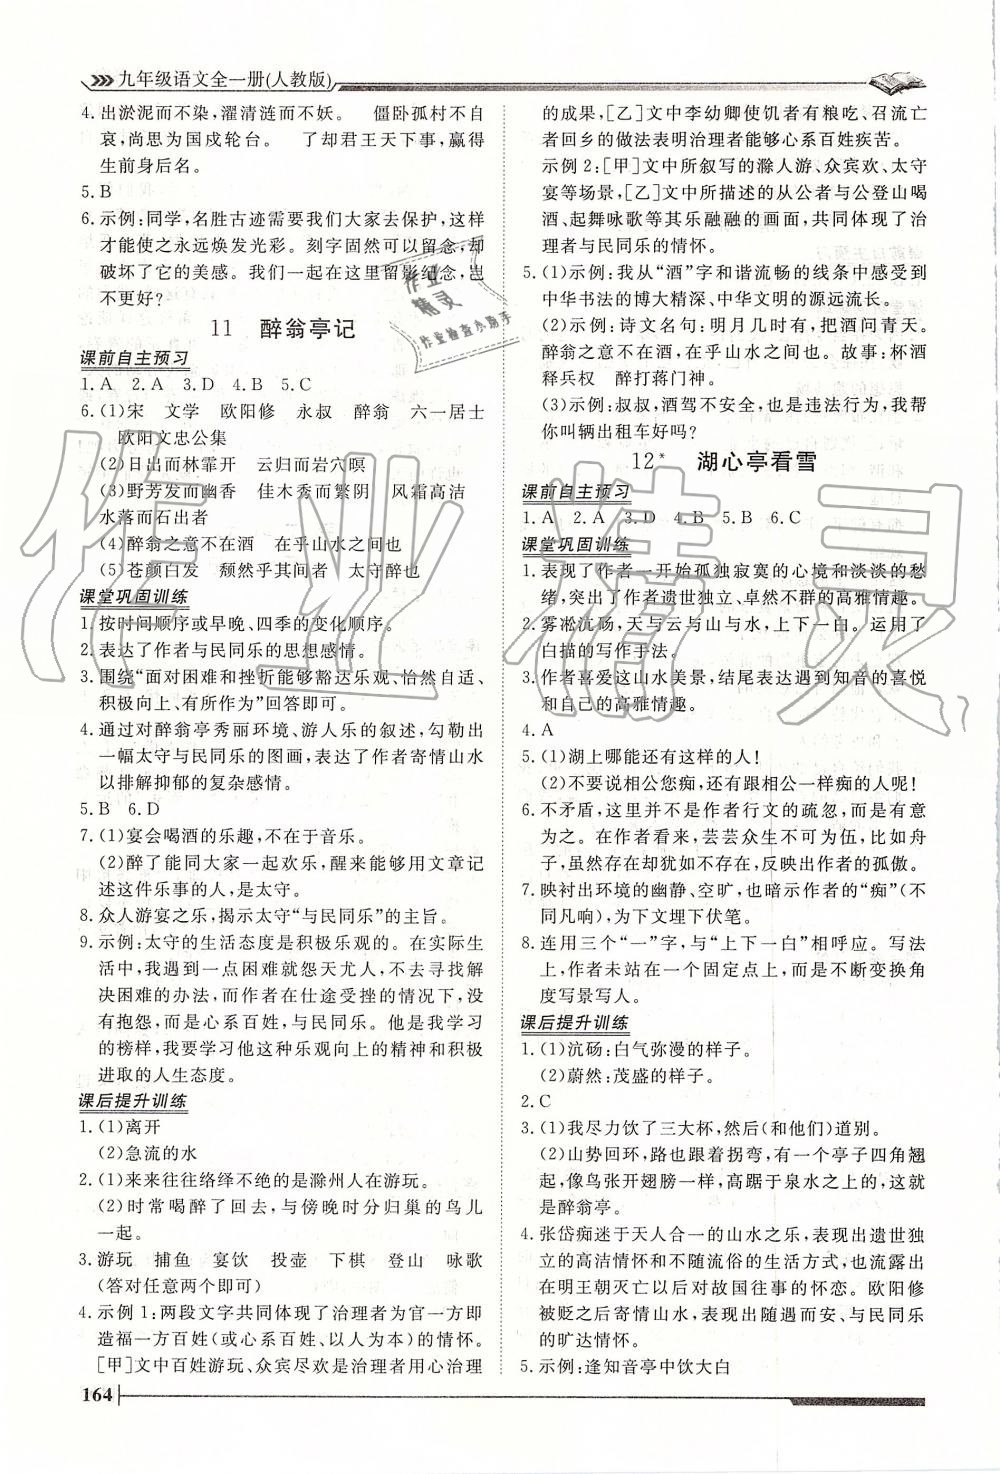 九年级语文全一册(人教版)
4. 出淤泥而不染,濯清涟而不妖。 僵卧孤村不自
哀,尚思为国戍轮台。 了却君王天下事,赢得
生前身后名。
5. B
6. 示例:同学,名胜古迹需要我们大家去保护,这样
才能使之永远焕发光彩。刻字固然可以留念,却
破坏了它的美感。我们一起在这里留影纪念,岂
不更好?
11 醉翁亭记
课前自主预习
1. A 2. A 3. D 4. B 5. C
6. (1)宋 文学 欧阳修 永叔 醉翁 六一居士
欧阳文忠公集
(2)日出而林霏开 云归而岩穴暝
(3)野芳发而幽香 佳木秀而繁阴 风霜高洁
水落而石出者
(4)醉翁之意不在酒 在乎山水之间也
(5)苍颜白发 颓然乎其间者 太守醉也
课堂巩固训练
1. 按时间顺序或早晚、四季的变化顺序。
2. 表达了作者与民同乐的思想感情。
3. 围绕“面对困难和挫折能够豁达乐观、怡然自适、
积极向上、有所作为”回答即可。
4. 通过对醉翁亭秀丽环境、游人乐的叙述,勾勒出
一幅太守与民同乐的图画,表达了作者寄情山水
以排解抑郁的复杂感情。
5. B 6. D
7. (1)宴会喝酒的乐趣,不在于音乐。
(2)醉了能同大家一起欢乐,醒来能够用文章记
述这件乐事的人,是太守。
8. 众人游宴之乐,揭示太守“与民同乐”的主旨。
9. 示例:太守的生活态度是积极乐观的。在实际生
活中,我遇到一点困难就怨天尤人,不去寻找解
决困难的办法,而作者在仕途受挫的情况下,没
有抱怨,而是心系百姓,与民同乐。他是我学习
的榜样,我要学习他这种乐观向上的精神和积极
进取的人生态度。
课后提升训练
1. (1)离开
(2)急流的水
2. (1)来来往往络绎不绝的是滁州人在游玩。
(2)时常喝醉了回去,与傍晚时分归巢的鸟儿
一起。
3. 游玩 捕鱼 宴饮 投壶 下棋 登山 咏歌
(答对任意两个即可)
4. 示例1:两段文字共同体现了治理者为官一方即
造福一方百姓(或心系百姓、以人为本)的情怀。
[甲]文中百姓游玩、众宾尽欢是治理者用心治理
的成果,[乙]文中李幼卿使饥者有粮吃、召流亡
者回乡的做法表明治理者能够心系百姓疾苦。
示例2:[甲]文中所叙写的滁人游、众宾欢、太守
宴等场景,[乙]文中所描述的从公者与公登山喝
酒、起舞咏歌等其乐融融的画面,共同体现了治
理者与民同乐的情怀。
5. (1)示例:我从“酒”字和谐流畅的线条中感受到
中华书法的博大精深、中华文明的源远流长。
(2)示例:诗文名句:明月几时有,把酒问青天。
醉翁之意不在酒,在乎山水之间也。故事:杯酒
释兵权 醉打蒋门神。
(3)示例:叔叔,酒驾不安全,也是违法行为,我帮
你叫辆出租车好吗?
12* 湖心亭看雪
课前自主预习
1. A 2. A 3. D 4. B 5. B 6. C
课堂巩固训练
1. 表现了作者一开始孤独寂寞的心境和淡淡的愁
绪,突出了作者遗世独立、卓然不群的高雅情趣。
2. 雾凇沆砀,天与云与山与水,上下一白。运用了
白描的写作手法。
3. 作者喜爱这山水美景,结尾表达遇到知音的喜悦
和自己的高雅情趣。
4. A
5. (1)湖上哪能还有这样的人!
(2)不要说相公您痴,还有跟相公一样痴的人呢!
6. 不矛盾,这里并不是作者行文的疏忽,而是有意
为之。在作者看来,芸芸众生不可为伍,比如舟
子,虽然存在却犹如不存在,反映出作者的孤傲。
7. 映衬出环境的幽静、空旷,也暗示作者的“痴”(不
同凡响),为下文埋下伏笔。
8. 连用三个“一”字,与“上下一白”相呼应。写法
上,作者未站在一个固定点上,而是不断变换角
度写景写人。
课后提升训练
1. (1)沆砀:白气弥漫的样子。
(2)蔚然:茂盛的样子。
2. C
3. (1)我尽力饮了三大杯,然后(和他们)道别。
(2)山势回环,路也跟着拐弯,有个亭子四角翘
起,像鸟张开翅膀一样,高踞于泉水之上的,就
是醉翁亭。
4. 张岱痴迷于天人合一的山水之乐,表现出遗世独
立的高洁情怀和不随流俗的生活方式,也流露出
在明王朝灭亡以后对故国往事的怀恋。欧阳修
被贬之后寄情山水,表现出随遇而安、与民同乐
的旷达情怀。
5. 示例:逢知音亭中饮大白
164
作业精灵
作业
精灵
作业检查小助手